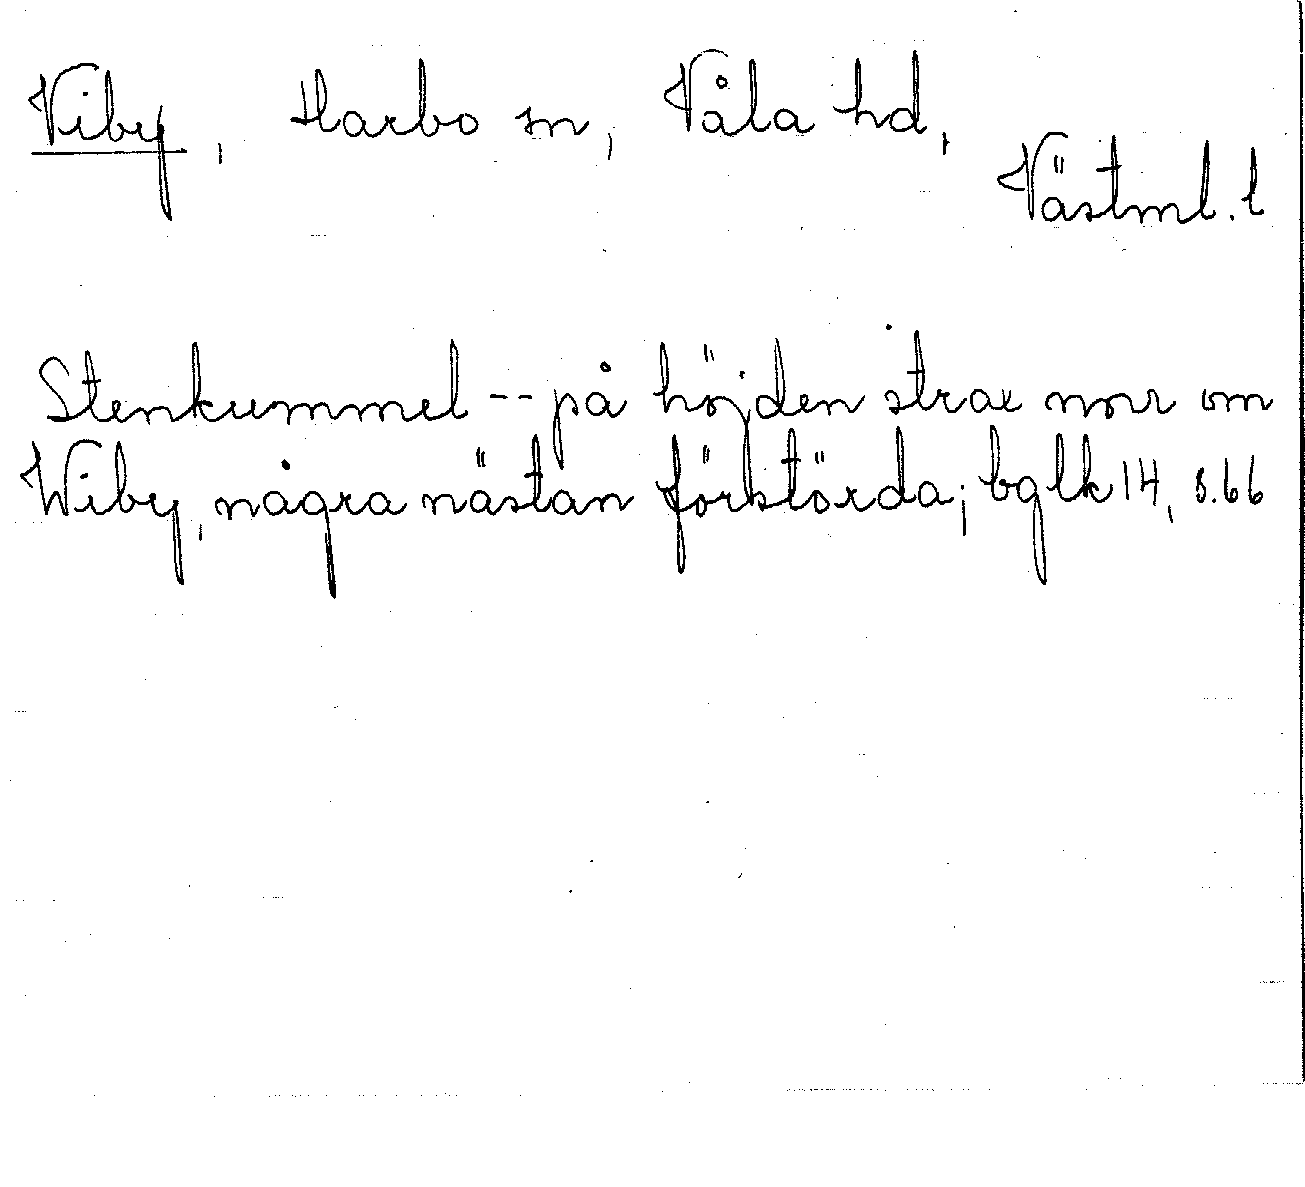 Viby, Harbo sn, Våla hd,
Västml. l
Stenkummel -- på höjden strax norr om
Wiby, några nästan förstörda; bglk 14, s.66